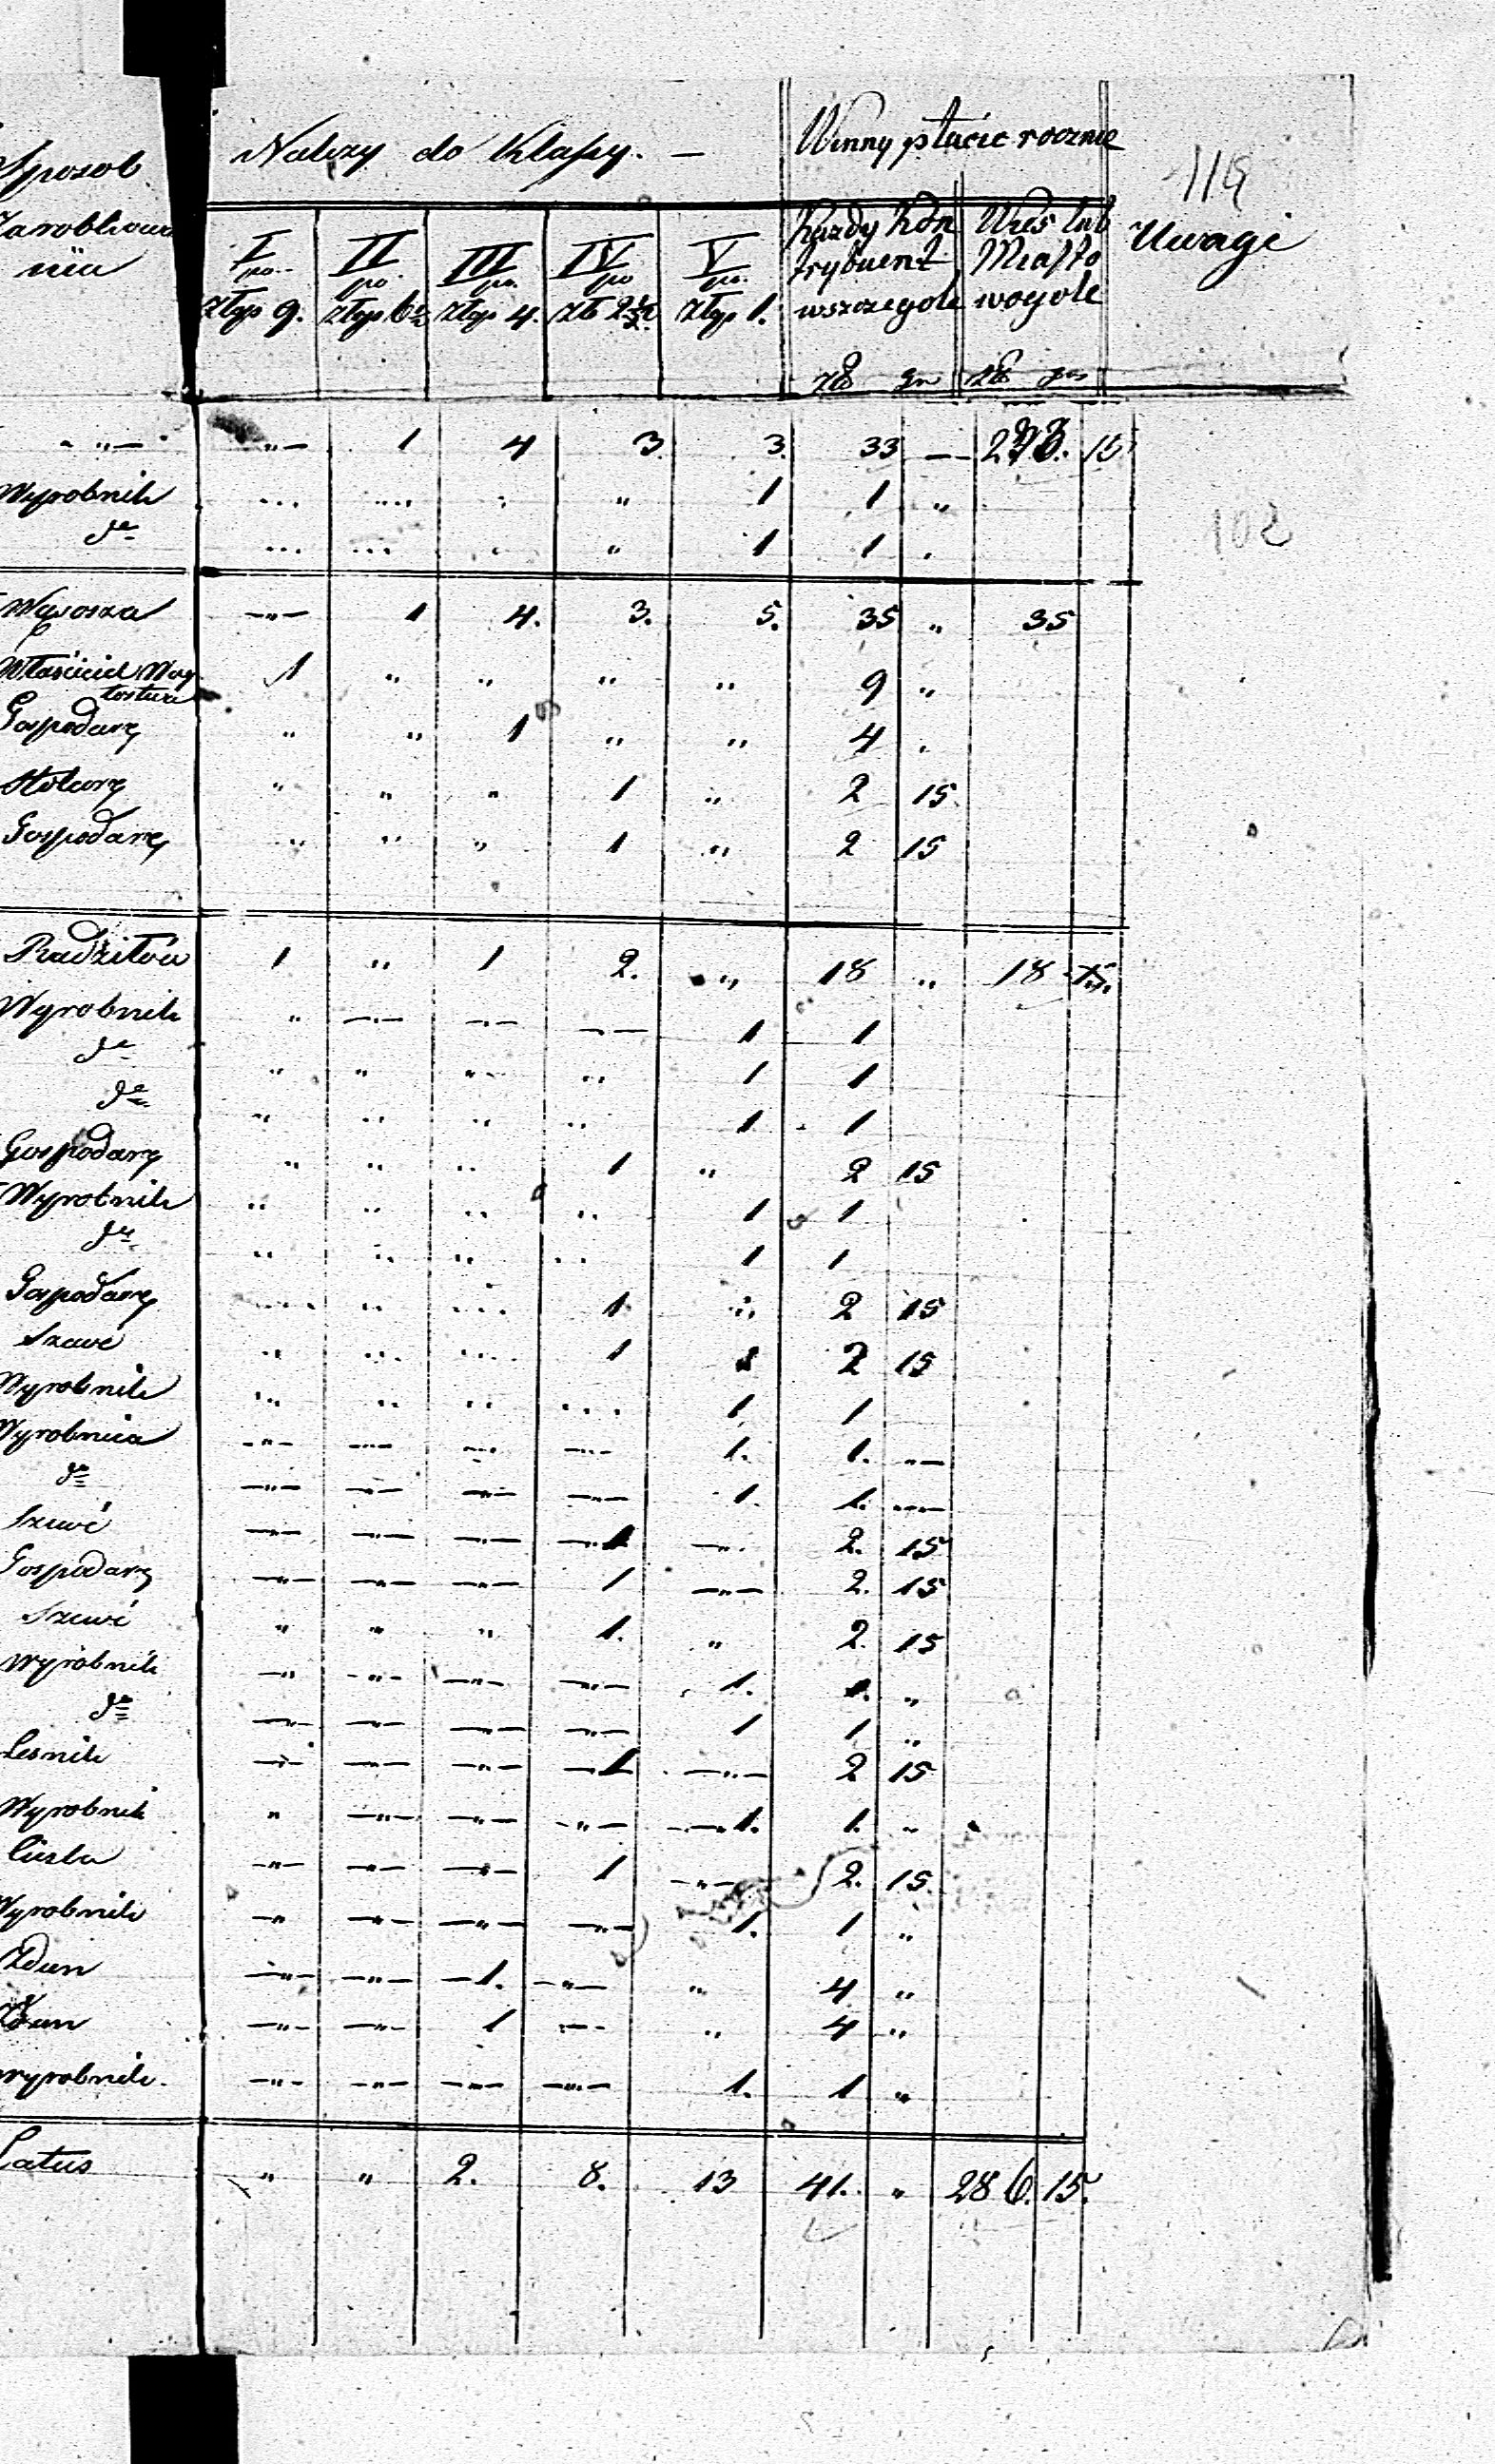 Sposob Nalezy do Klassy. — Winny płacic rocznie 119
Zarobkowa I II III IV V Kazdy Kon Wies lub Uwagi
nia po po po. po po. trybuent Miasto
złzp 9. złzp 6 złzp 4. Zło 2½ złzp 1. wszczegole wogole
zło gr zło gr
" — " — 1 4 3 3. 33 — 15
Wyrobnik " " " " 1 1 "
do " " " " 1 1 "
Wąsosza — " — 1 4. 3. 5. 35 " 35
Właściciel Woy
tostwa 1 " " " " 9 "
Gospodarz " " 1 " " 4 "
Stolarz " " " 1 " 2 15
Gospodarz " " " 1 " 2 15
102
Radziłów 1 " 1 2. " 18 " 18
Wyrobnik " — " — — " — — " — 1 1
do " " " " 1 1
do " " " " 1 1
Gospodarz " " " 1 " 2 15
Wyrobnik " " " " 1 1
do " " " " 1 1
Gospodarz " " " 1 " 2 15
Szewc " " " 1 2 15
Wyrobnik " " " " 1 1
Wyrobnica — " — — " — — " — — " — 1. 1. " —
do — " — — " — — " — — " — 1. 1. — " —
Szewc — " — — " — — " — 1 — " — 2. 15
Gospodarz — " — — " — — " — 1 — " — 2. 15
Szewc " " " 1. " 2. 15
Wyrobnik — " — " — — " — — " — 1. 1. "
do — " — — " — — " — — " — 1 1 "
Lesnik — " — — " — — " — 1 — " — 2 15
Wyrobnik " — " — — " — — " — 1. 1. "
Ciesla — " — — " — — " — 1 — " — 2. 15
Wyrobnik — " — " — — " — — " — 1. 1 "
Zdun — " — — " — 1. — " — " 4 "
Zdun — " — — " — 1 — " — " 4 "
wyrobnik. — " — — " — — " — — " — 1. 1 "
Latus " " 2. 8. 13 41. " 286. 15.